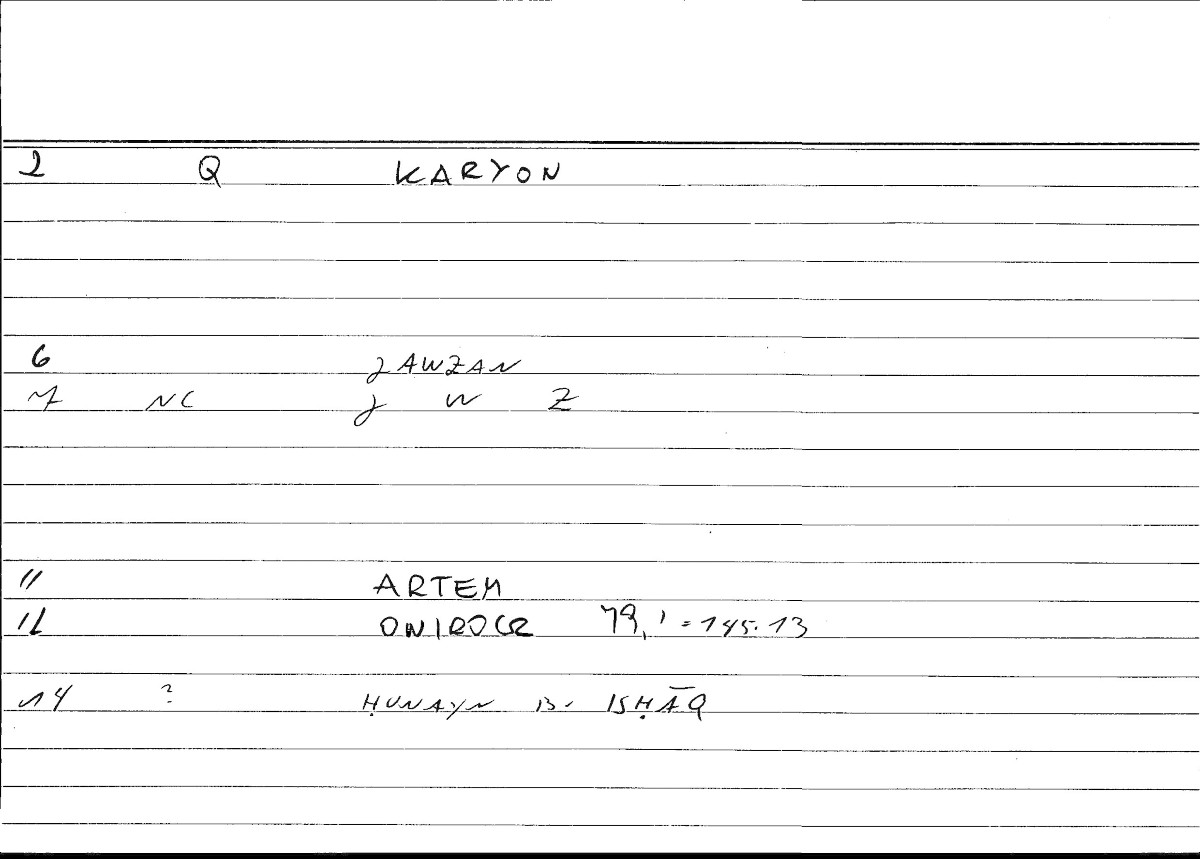 2 Q KARYON
6 JAWZAN
7 NC J W Z
11 ARTEM
12 ONIROCR 79,1 = 145.13
14 ? ḤUNAYN B. ISḤĀQ